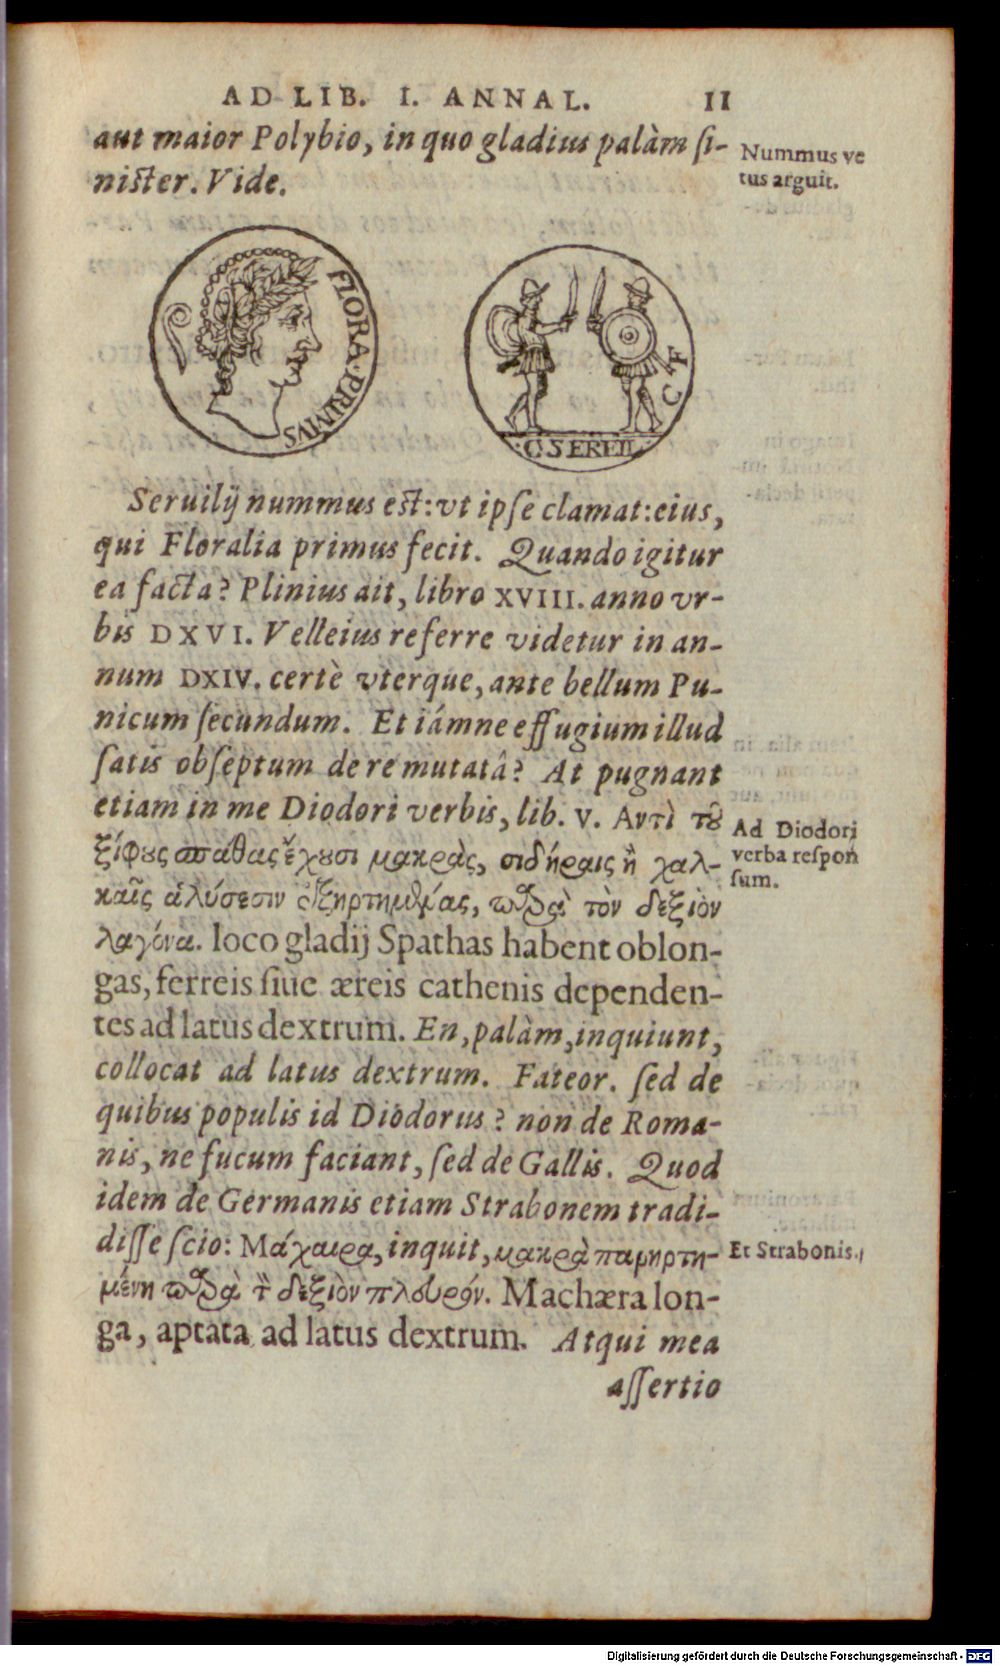 AD LIB. I. ANNAL. 11
aut maior Polybio, in quo gladius palàm ſi-
niſter. Vide.
Nummus ve
tus arguit.
FLORA·PRIMVS
C F
·C·SEREIL·
Seruilij nummus eſt: vt ipſe clamat: eius,
qui Floralia primus fecit. Quando igitur
ea facta? Plinius ait, libro XVIII. anno vr-
bis DXVI. Velleius referre videtur in an-
num DXIV. certè vterque, ante bellum Pu-
nicum ſecundum. Et iámne effugium illud
ſatis obſeptum de re mutatâ? At pugnant
etiam in me Diodori verbis, lib. V. Αντὶ τȣ͂
Ad Diodori
verba reſpon
ſum.
ξίφȣς σπάθας ἔχȣσι μακρὰς, σιδήραις ἢ χαλ-
καῖς ἁλύσεσιν ἐξηρτημένας, παρὰ τὸν δεξιὸν
λαγόνα. loco gladij Spathas habent oblon-
gas, ferreis ſiue æreis cathenis dependen-
tes ad latus dextrum. En, palàm, inquiunt,
collocat ad latus dextrum. Fateor. ſed de
quibus populis id Diodorus? non de Roma-
nis, ne fucum faciant, ſed de Gallis. Quod
idem de Germanis etiam Strabonem tradi-
diſſe ſcio: Μάχαιρα, inquit, μακρὰ παρηρτη-
Et Strabonis.
μένη παρὰ τὸ δεξιὸν πλευρόν. Machæra lon-
ga, aptata ad latus dextrum. Atqui mea
aſſertio
Digitalisierung gefördert durch die Deutsche Forschungsgemeinschaft - DFG